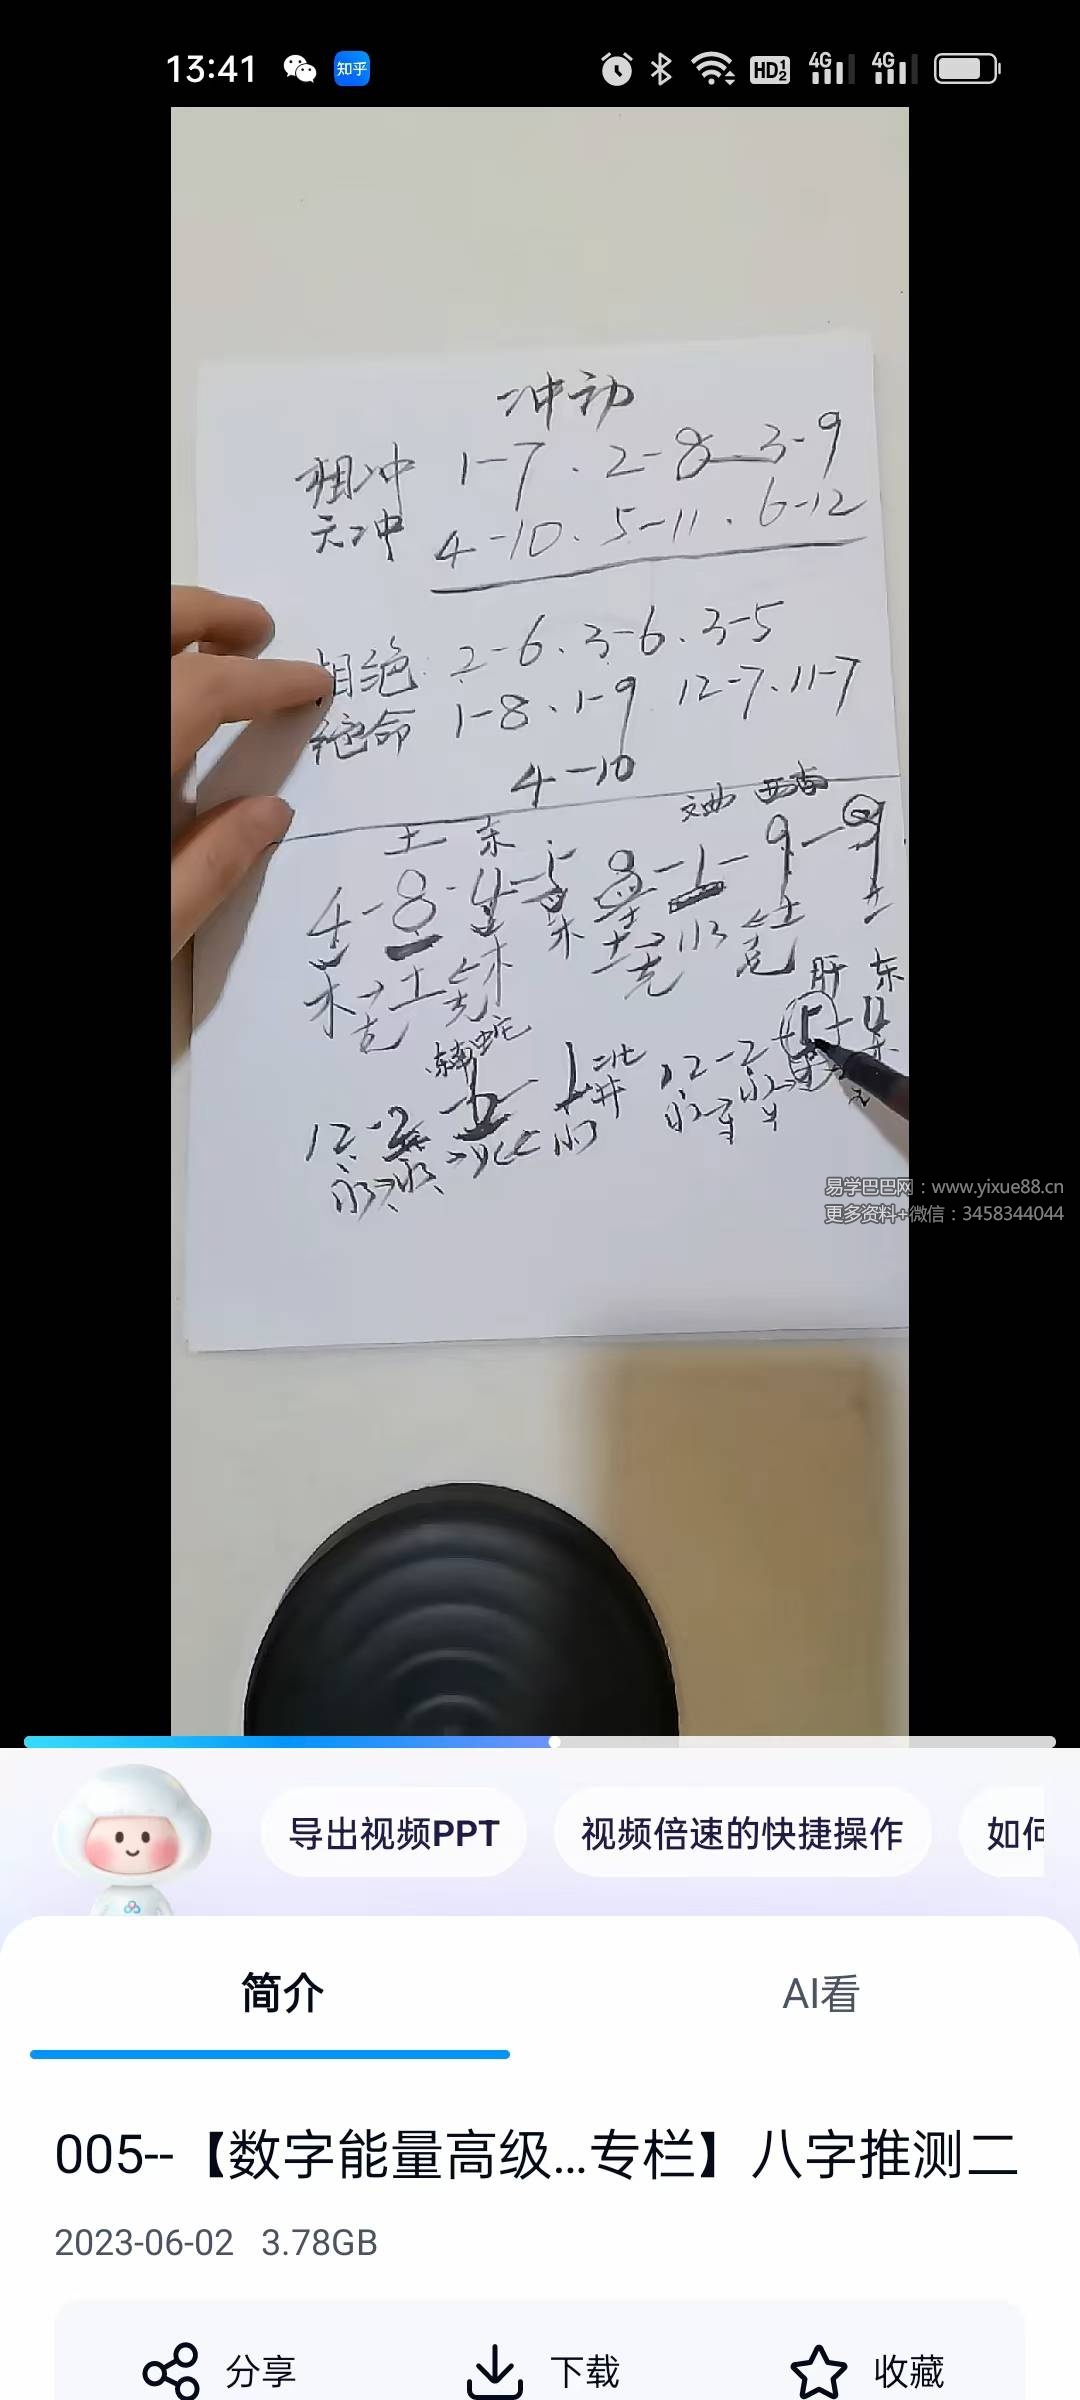 13:41 知乎 HD 1 2 4G 4G
冲动
相冲 1-7 . 2-8 3-9
天冲 4-10 . 5-11 . 6-12
相绝: 2-6 . 3-6 . 3-5
绝命 1-8 . 1-9 12-7 . 11-7
4-10
文曲 西南
土 东
4-8-4-5 8-1-9-9
木 土 木 木 土 水 土 土
克 克 克 克
肝 东
12-2 1 12-2 5-4
易学巴巴网：www.yixue88.cn
更多资料+微信：3458344044
导出视频PPT 视频倍速的快捷操作 如何
简介 AI看
005--【数字能量高级...专栏】八字推测二
2023-06-02 3.78GB
分享 下载 收藏